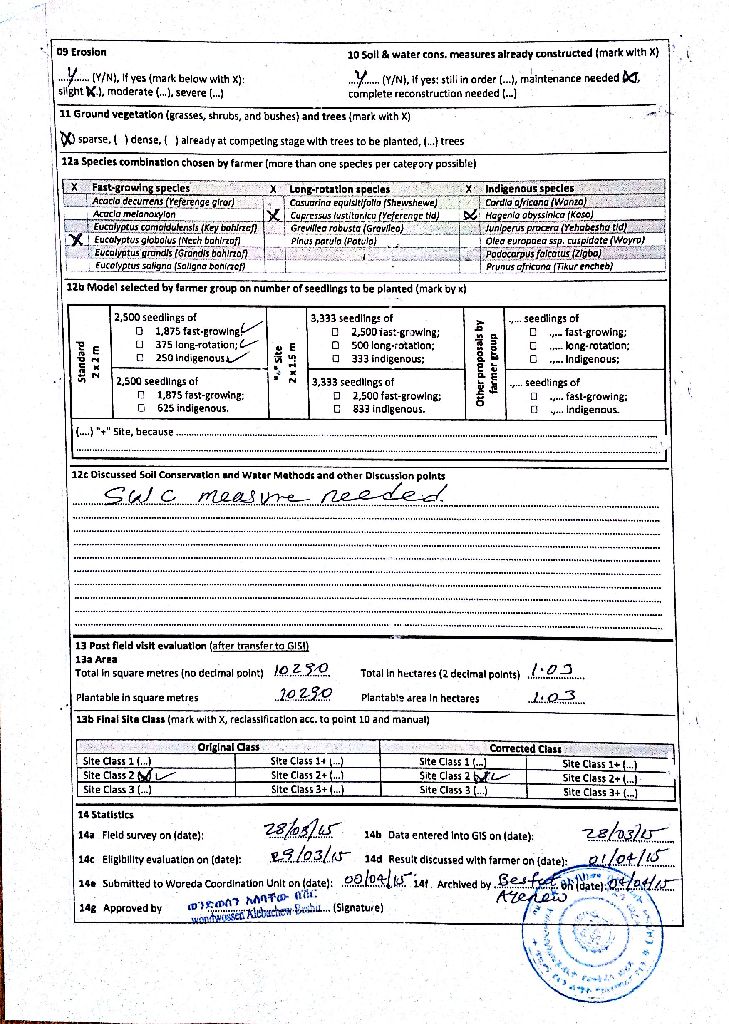 09 Erosion
10 Soil & water cons. measures already constructed (mark with X)
...Y..... (Y/N), if yes (mark below with X):
...Y..... (Y/N), if yes: still in order (...), maintenance needed (X),
slight (X), moderate (...), severe (...)
complete reconstruction needed (...)
11 Ground vegetation (grasses, shrubs, and bushes) and trees (mark with X)
(X) sparse, ( ) dense, ( ) already at competing stage with trees to be planted, (...) trees
12a Species combination chosen by farmer (more than one species per category possible)
X Fast-growing species X Long-rotation species X Indigenous species
Acacia decurrens (Yeferenge girar) Casuarina equisitifolia (Shewshewe) Cordia africana (Wanza)
Acacia melanoxylon X Cupressus lusitanica (Yeferenge tid) X Hagenia abyssinica (Koso)
Eucalyptus camaldulensis (Key bahirzaf) Grevillea robusta (Gravilea) Juniperus procera (Yehabesha tid)
X Eucalyptus globulus (Nech bahirzaf) Pinus patula (Patula) Olea europaea ssp. cuspidate (Wayra)
Eucalyptus grandis (Grandis bahirzaf) Podocarpus falcatus (Zigba)
Eucalyptus saligna (Saligna bahirzaf) Prunus africana (Tikur encheb)
12b Model selected by farmer group on number of seedlings to be planted (mark by x)
Standard
2 x 2 m
2,500 seedlings of
☐ 1,875 fast-growing; ✓
☐ 375 long-rotation; ✓
☐ 250 indigenous. ✓
2,500 seedlings of
☐ 1,875 fast-growing;
☐ 625 indigenous.
"+" Site
2 x 1.5 m
3,333 seedlings of
☐ 2,500 fast-growing;
☐ 500 long-rotation;
☐ 333 indigenous;
3,333 seedlings of
☐ 2,500 fast-growing;
☐ 833 indigenous.
Other proposals by
farmer group
.,... seedlings of
☐ .,... fast-growing;
☐ .,... long-rotation;
☐ .,... indigenous;
.,... seedlings of
☐ .,... fast-growing;
☐ .,... indigenous.
(....) "+" Site, because
12c Discussed Soil Conservation and Water Methods and other Discussion points
SWC measure needed
13 Post field visit evaluation (after transfer to GIS!)
13a Area
Total in square metres (no decimal point) 10290 Total in hectares (2 decimal points) 1.03
Plantable in square metres 10290 Plantable area in hectares 1.03
13b Final Site Class (mark with X, reclassification acc. to point 10 and manual)
Original Class Corrected Class
Site Class 1 (...) Site Class 1+ (...) Site Class 1 (...) Site Class 1+ (...)
Site Class 2 (X) ✓ Site Class 2+ (...) Site Class 2 (X) ✓ Site Class 2+ (...)
Site Class 3 (...) Site Class 3+ (...) Site Class 3 (...) Site Class 3+ (...)
14 Statistics
14a Field survey on (date): 28/03/15 14b Data entered into GIS on (date): 28/03/15
14c Eligibility evaluation on (date): 29/03/15 14d Result discussed with farmer on (date): 01/04/15
14e Submitted to Woreda Coordination Unit on (date): 14f Archived by on (date):
14g Approved by (Signature)